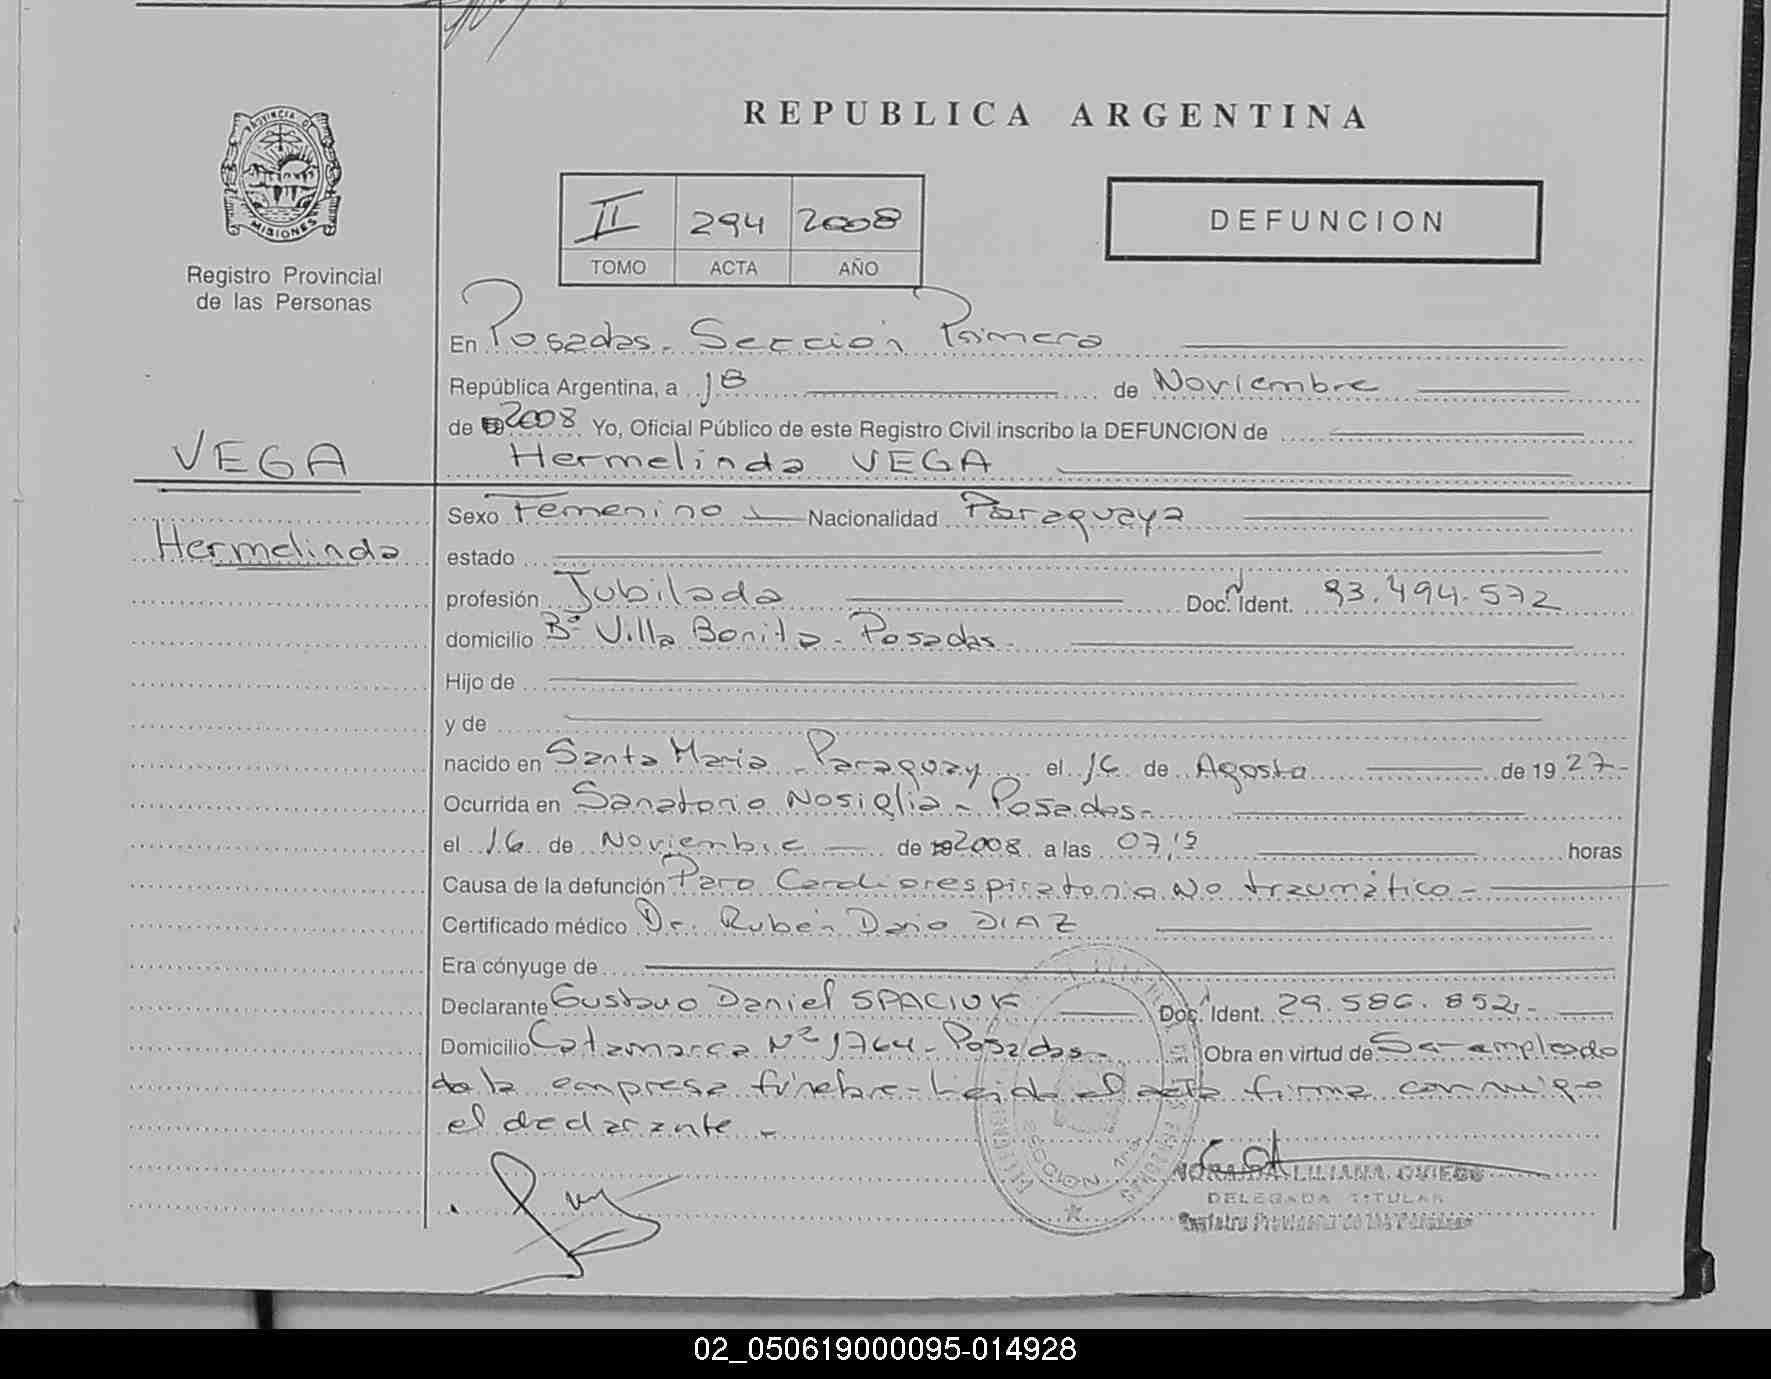 REPUBLICA ARGENTINA
PROVINCIA D
MISIONES
Registro Provincial
de las Personas
II 294 2008
TOMO ACTA AÑO
DEFUNCION
En Posadas - Sección Primera
República Argentina, a 18 de Noviembre
de 2008 Yo, Oficial Público de este Registro Civil inscribo la DEFUNCION de
VEGA
Hermelinda VEGA
Hermelinda
Sexo Femenino Nacionalidad Paraguaya
estado
profesión Jubilada Doc. Ident. 93.494.572
domicilio B° Villa Bonita - Posadas -
Hijo de
y de
nacido en Santa Maria - Paraguay el 16 de Agosto de 19 27-
Ocurrida en Sanatorio Nosiglia - Posadas -
el 16 de Noviembre de 2008 a las 07,15 horas
Causa de la defunción Paro Cardiorespiratorio No traumático -
Certificado médico Dr. Rubén Dario DIAZ
Era cónyuge de
Declarante Gustavo Daniel SPACIUK Doc. Ident. 29.586.852 -
Domicilio Catamarca N° 1764 - Posadas - Obra en virtud de Ser empleado
de la empresa fúnebre - Leida el acta firma conmigo
el declarante -
SECCION 1ra
LILIANA OVIEDO
DELEGADA TITULAR
Registro Provincial de las Personas
02_050619000095-014928